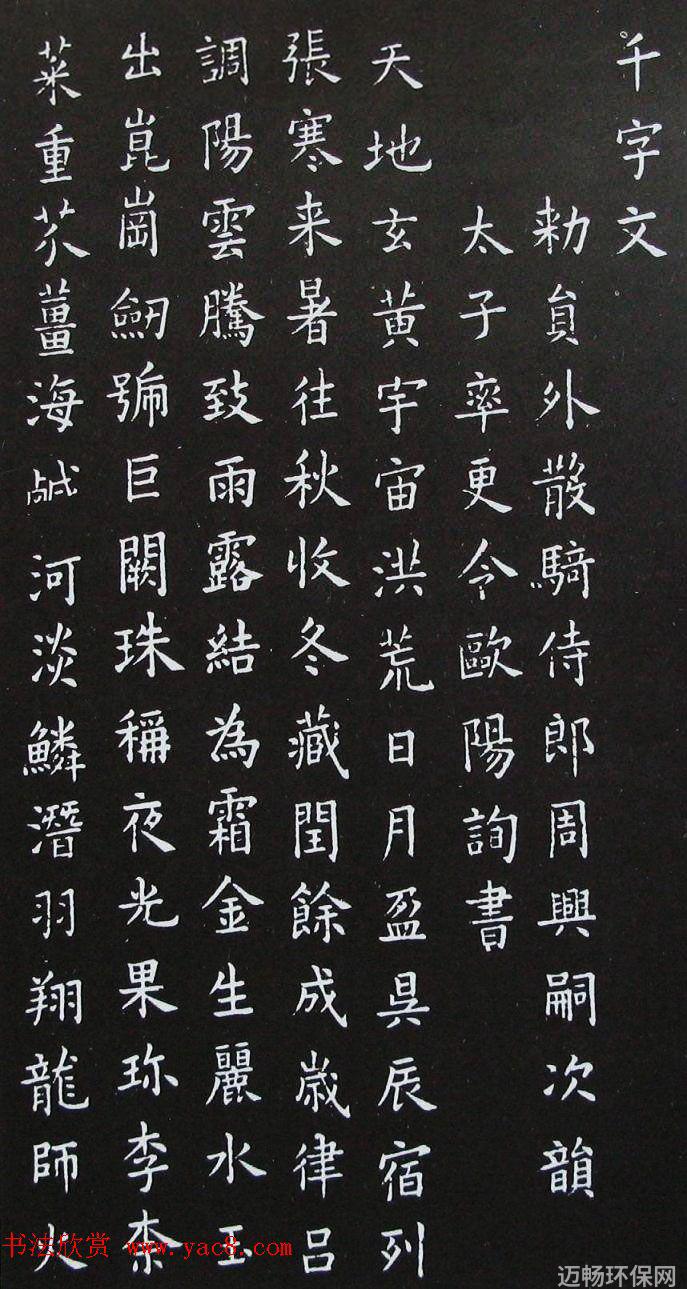 千字文
勑貟外散騎侍郎周興嗣次韻
太子率更令歐陽詢書
天地玄黃宇宙洪荒日月盈昃辰宿列
張寒来暑往秋收冬藏閏餘成歲律呂
調陽雲騰致雨露結為霜金生麗水玉
出崑崗劒號巨闕珠稱夜光果珎李柰
菜重芥薑海鹹河淡鱗潛羽翔龍師火
书法欣赏 www.yac8.com
迈畅环保网